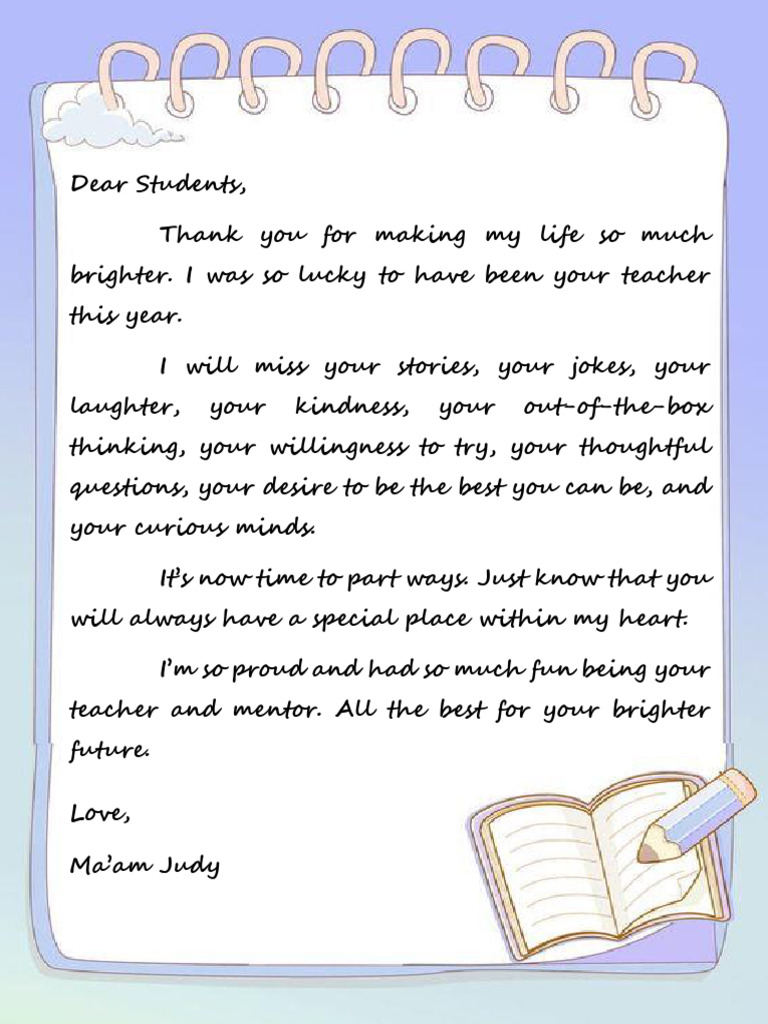 Dear Students,
Thank you for making my life so much
brighter. I was so lucky to have been your teacher
this year.
I will miss your stories, your jokes, your
laughter, your kindness, your out-of-the-box
thinking, your willingness to try, your thoughtful
questions, your desire to be the best you can be, and
your curious minds.
It's now time to part ways. Just know that you
will always have a special place within my heart.
I'm so proud and had so much fun being your
teacher and mentor. All the best for your brighter
future.
Love,
Ma'am Judy